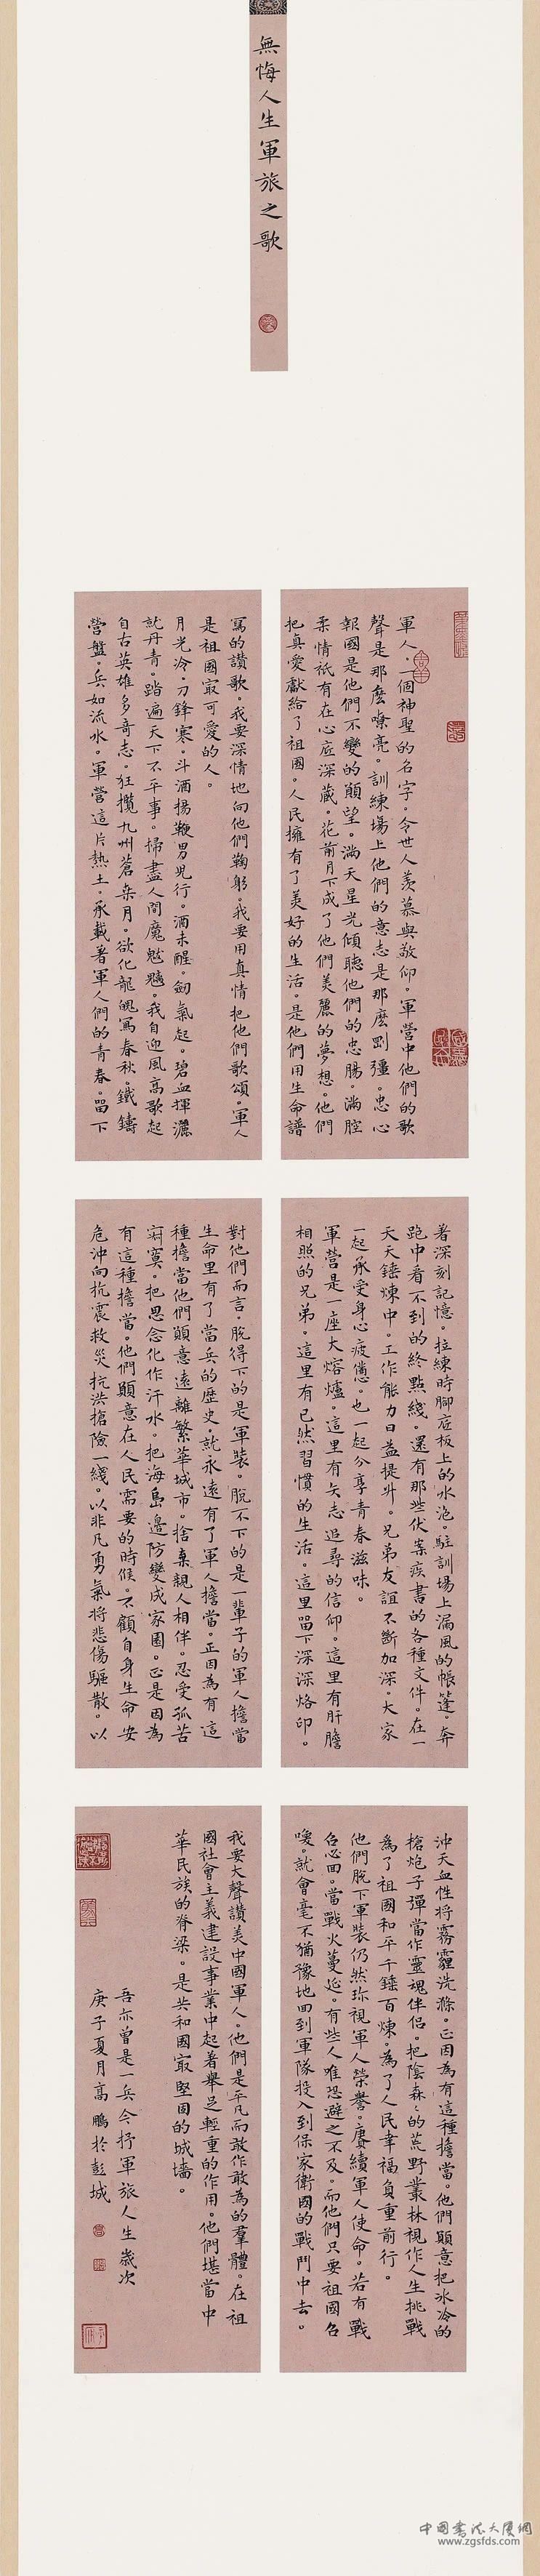 無悔人生軍旅之歌
軍人．一個神聖的名字。令世人羨慕與敬仰。軍營中他們的歌
聲是那麽嘹亮。訓練場上他們的意志是那麽剛彊。忠心
報國是他們不變的願望。滿天星光傾聽他們的忠腸。滿腔
柔情祇有在心底深藏。花前月下成了他們美麗的夢想。他們
把真愛獻給了祖國。人民擁有了美好的生活。是他們用生命譜
寫的讚歌。我要深情地向他們鞠躬。我要用真情把他們歌頌。軍人
是祖國寂可愛的人。
月光冷。刀鋒寒。斗酒揚鞭男兒行。酒未醒。劒氣起。碧血揮灑
就丹青。踏遍天下不平事。掃盡人間魔魃魑。我自迎風高歌起
自古英雄多奇志。狂攬九州蒼桒月。欲化龍魄寫春秋。鐵鑄
營盤。兵如流水。軍營這片熱土。承載著軍人們的青春。畱下
著深刻記憶。拉練時腳底板上的水泡。駐訓場上漏風的帳篷。奔
跑中看不到的終點綫。還有那些伏案疾書的各種文件。在一
天天錘煉中。工作能力日益提升。兄弟友誼不斷加深。大家
一起承受身心疲憊。也一起分享青春滋味。
軍營是一座大熔爐。這里有矢志追尋的信仰。這里有肝膽
相照的兄弟。這里有已然習慣的生活。這里畱下深深烙印。
對他們而言。脫得下的是軍裝。脫不下的是一輩子的軍人擔當
生命里有了當兵的歷史。就永遠有了軍人擔當。正因為有這
種擔當他們願意遠離繁華城市。捨棄親人相伴。忍受孤苦
寂寞。把思念化作汗水。把海島邊防變成家園。正是因為
有這種擔當。他們願意在人民需要的時候。不顧自身生命安
危沖向抗震救災抗洪搶險一綫。以非凡勇氣將悲傷驅散。以
沖天血性將霧霾洗滌。正因為有這種擔當。他們願意把冰冷的
槍炮子彈當作靈魂伴侶。把陰森〻的荒野叢林視作人生挑戰
為了祖國和平千錘百煉。為了人民幸福負重前行。
他們脫下軍裝仍然珎視軍人榮譽。賡續軍人使命。若有戰
召必回。當戰火蔓延。有些人唯恐避之不及。而他們只要祖國召
喚。就會毫不猶豫地回到軍隊投入到保家衛國的戰鬥中去。
我要大聲讚美中國軍人。他們是平凡而敢作敢為的羣體。在祖
國社會主義建設事業中起着舉足輕重的作用。他們堪當中
華民族的脊梁。是共和國寂堅固的城墻。
吾亦曾是一兵今抒軍旅人生歲次
庚子夏月高鵬於彭城
中国书法大厦网
www.zgsfds.com